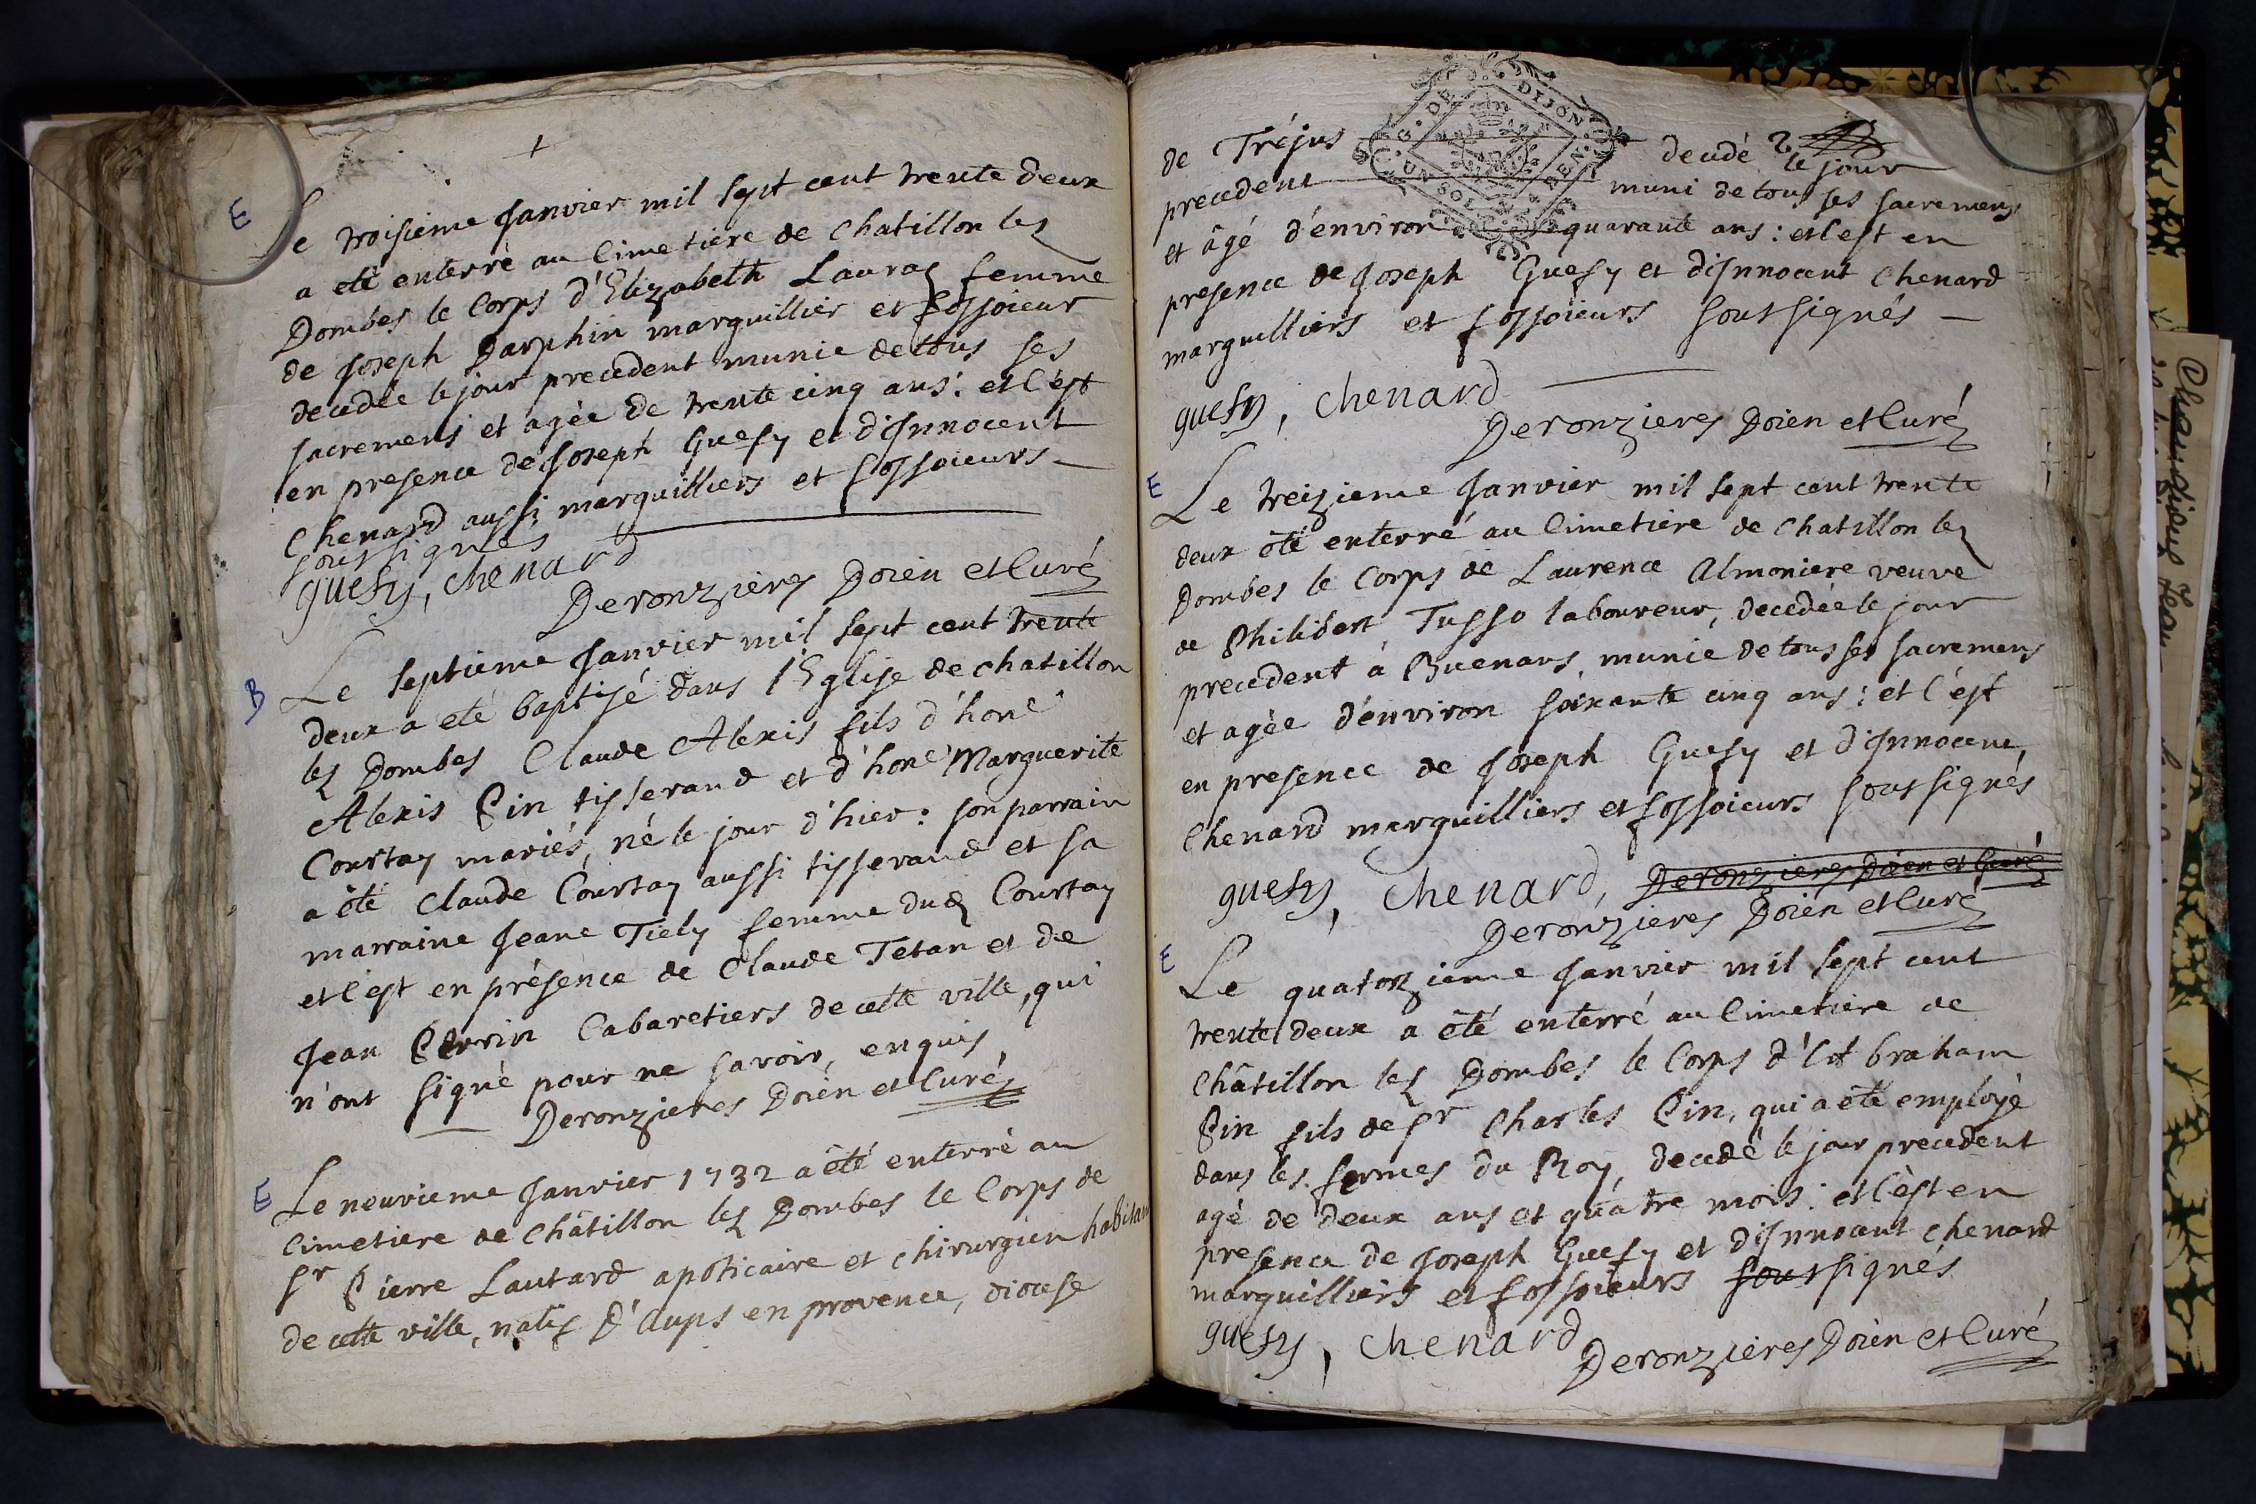 E
Le troisieme Janvier mil sept cent trente deux
a eté enterré au Cimetiere de Chatillon les
Dombes le Corps d'Elizabeth Lauras femme
de Joseph Darphin marguillier et fossoieur
decedée le jour precedent munie de tous ses
sacremens et agée de trente cinq ans: et c'est
en presence de Joseph Guesy et d'Innocent
Chenard aussi marguilliers et fossoieurs
soussignés
guesy, chenard
Deronzieres Doien et Curé
B
Le septieme Janvier mil sept cent trente
deux a eté baptisé dans l'Eglise de chatillon
les Dombes Claude Alexis fils d'honé
Alexis Pin tisserand et d'honé Marguerite
Courtay mariés, né le jour d'hier: son parrain
a été Claude Courtay aussi tisserand et sa
marraine Jeane Tiely femme dud Courtay
et c'est en présence de Claude Tetan et de
Jean Perrin Cabaretiers de cette ville, qui
n'ont signé pour ne savoir, enquis
Deronzieres Doien et Curé
E
Le neuvieme Janvier 1732 a été enterré au
Cimetiere de Châtillon les Dombes le Corps de
sr Pierre Lautard apoticaire et chirurgien habitant
de cette ville, natif d'Aups en provence, diocese
de Fréjus decedé le jour
precedent muni de tous ses sacremens
et âgé d'environ quarante ans: et c'est en
presence de Joseph Guesy et d'Innocent Chenard
marguilliers et fossoieurs soussignés
guesy, chenard
Deronzieres Doien et Curé
E
Le treizieme Janvier mil sept cent trente
deux été enterré au Cimetiere de Chatillon les
Dombes le Corps de Laurence Almoniere veuve
de Philibert Tusso laboureur, decedée le jour
precedent à Buenans, munie de tous ses sacremens
et agée d'environ soixante cinq ans: et c'est
en presence de Joseph Guesy et d'Innocent
Chenard marguilliers et fossoieurs soussignés
guesy, chenard, Deronzieres Doien et Curé
Deronzieres Doien et Curé
E
Le quatorzieme Janvier mil sept cent
trente deux a été enterré au Cimetiere de
Châtillon les Dombes le Corps d'Abraham
Pin fils de sr Charles Pin, qui a été employé
dans les fermes du Roy, decedé le jour precedent
agé de deux ans et quatre mois: et c'est en
presence de Joseph Guesy et d'Innocent Chenard
marguilliers et fossoieurs soussignés
guesy, chenard
Deronzieres Doien et Curé
G. DE DIJON
UN SOL
DEN.